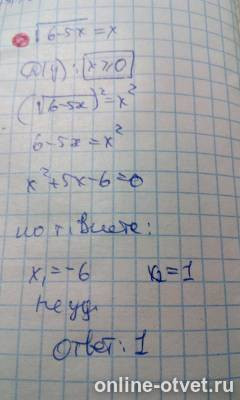 √6-5x = x
D(y): x ≥ 0
(√6-5x)² = x²
6-5x = x²
x²+5x-6=0
по т. Виета:
x₁=-6 x₂=1
не уд.
Ответ: 1
online-otvet.ru